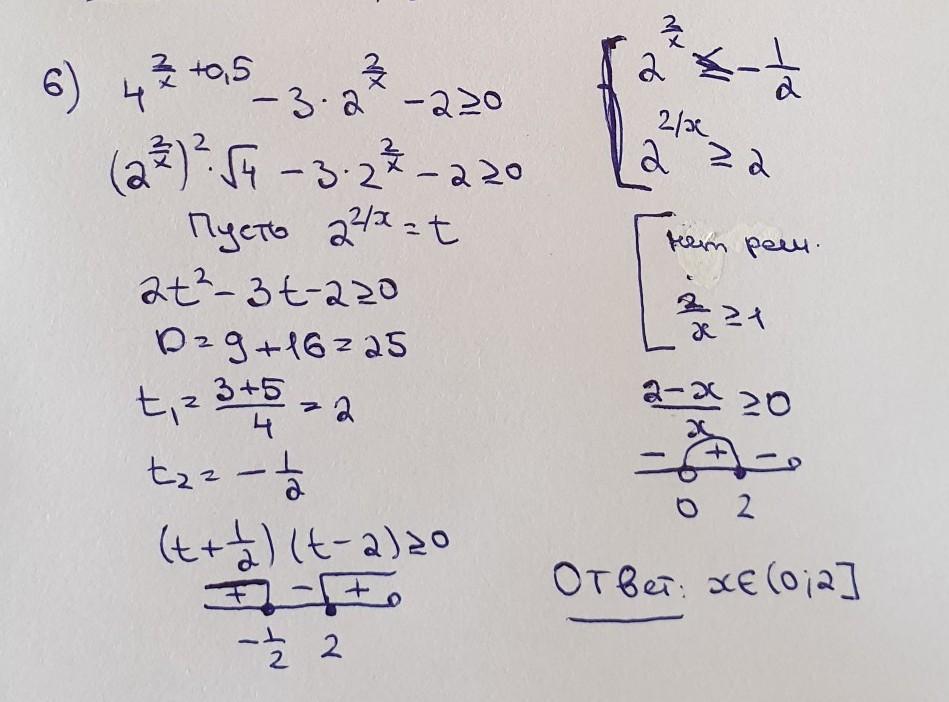 6) 4^{\frac{2}{x}+0,5} - 3 · 2^{\frac{2}{x}} - 2 ≥ 0
(2^{\frac{2}{x}})^2 · √4 - 3 · 2^{\frac{2}{x}} - 2 ≥ 0
Пусть 2^{2/x} = t
2t² - 3t - 2 ≥ 0
D = 9 + 16 = 25
t₁ = \frac{3+5}{4} = 2
t₂ = -\frac{1}{2}
(t + \frac{1}{2}) (t - 2) ≥ 0
+ - +
-\frac{1}{2} 2
2^{\frac{2}{x}} ≤ -\frac{1}{2}
2^{2/x} ≥ 2
нет реш.
\frac{2}{x} ≥ 1
\frac{2-x}{x} ≥ 0
- + -
0 2
Ответ: x ∈ (0;2]